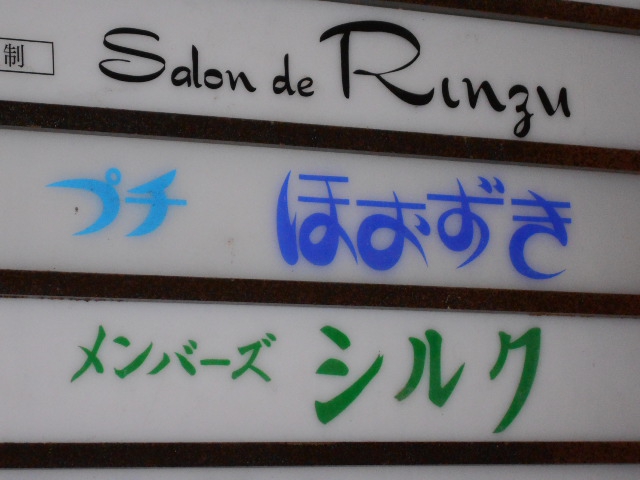 制
Salon de Rinzu
プチ ほおずき
メンバーズ シルク